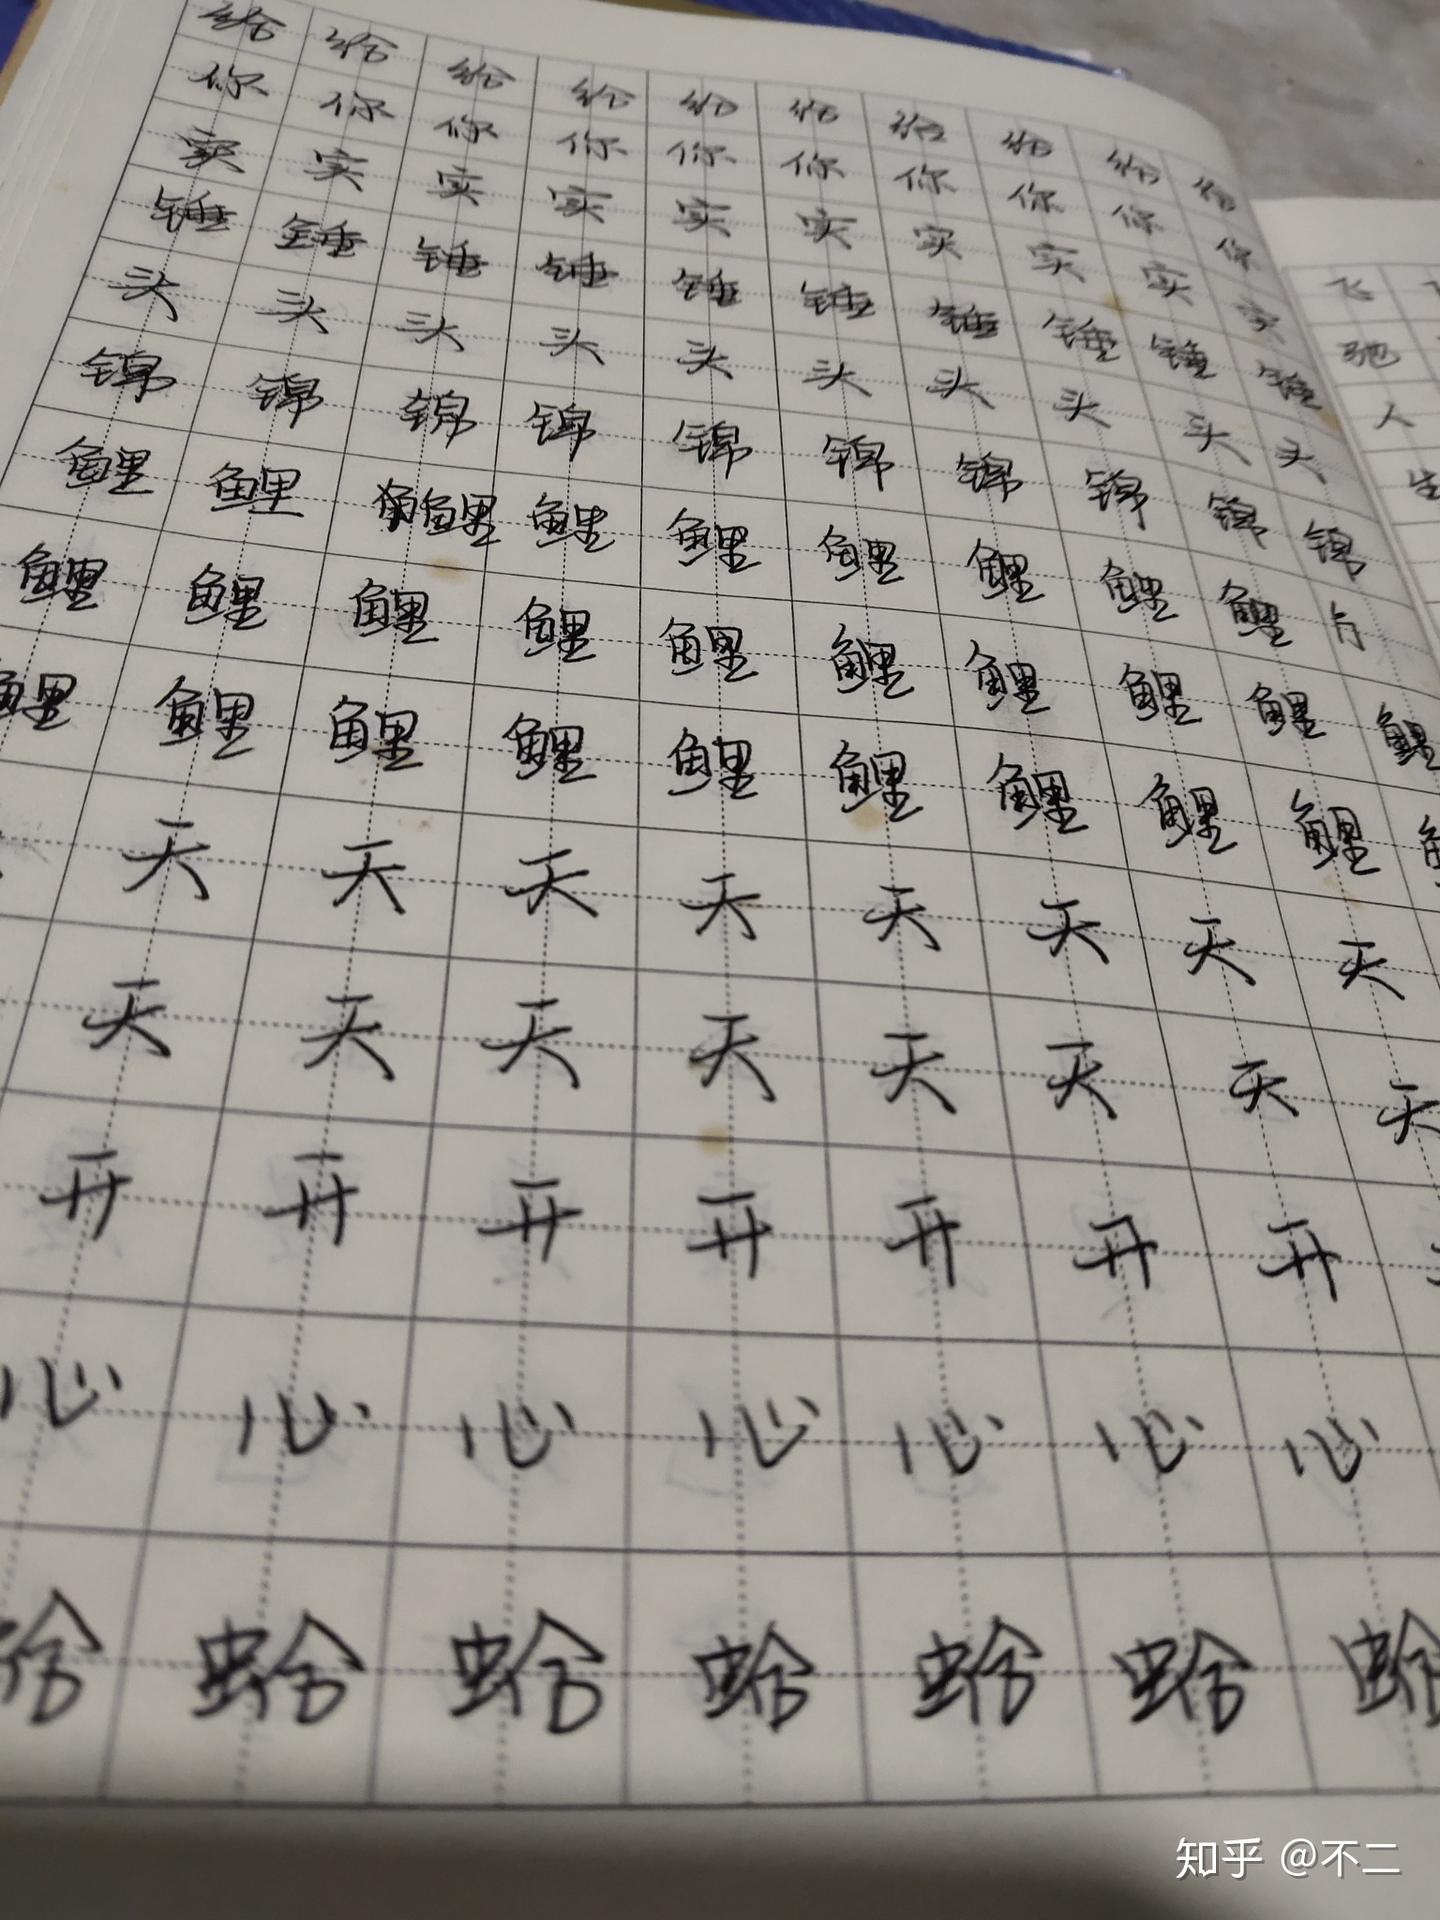 给 给 给 给 给 给 给 给 给 给
你 你 你 你 你 你 你 你 你 你
实 实 实 实 实 实 实 实 实 实
锤 锤 锤 锤 锤 锤 锤 锤 锤 锤
头 头 头 头 头 头 头 头 头 头
锦 锦 锦 锦 锦 锦 锦 锦 锦 锦
鲤 鲤 鲤 鲤 鲤 鲤 鲤 鲤 鲤
鲤 鲤 鲤 鲤 鲤 鲤 鲤 鲤 鲤 鲤
鲤 鲤 鲤 鲤 鲤 鲤 鲤 鲤 鲤
天 天 天 天 天 天 天 天
天 天 天 天 天 天 天 天
开 开 开 开 开 开 开
心 心 心 心 心 心 心
蛤 蛤 蛤 蛤 蛤 蛤 蛤
飞
驰
人
生
知乎 @不二